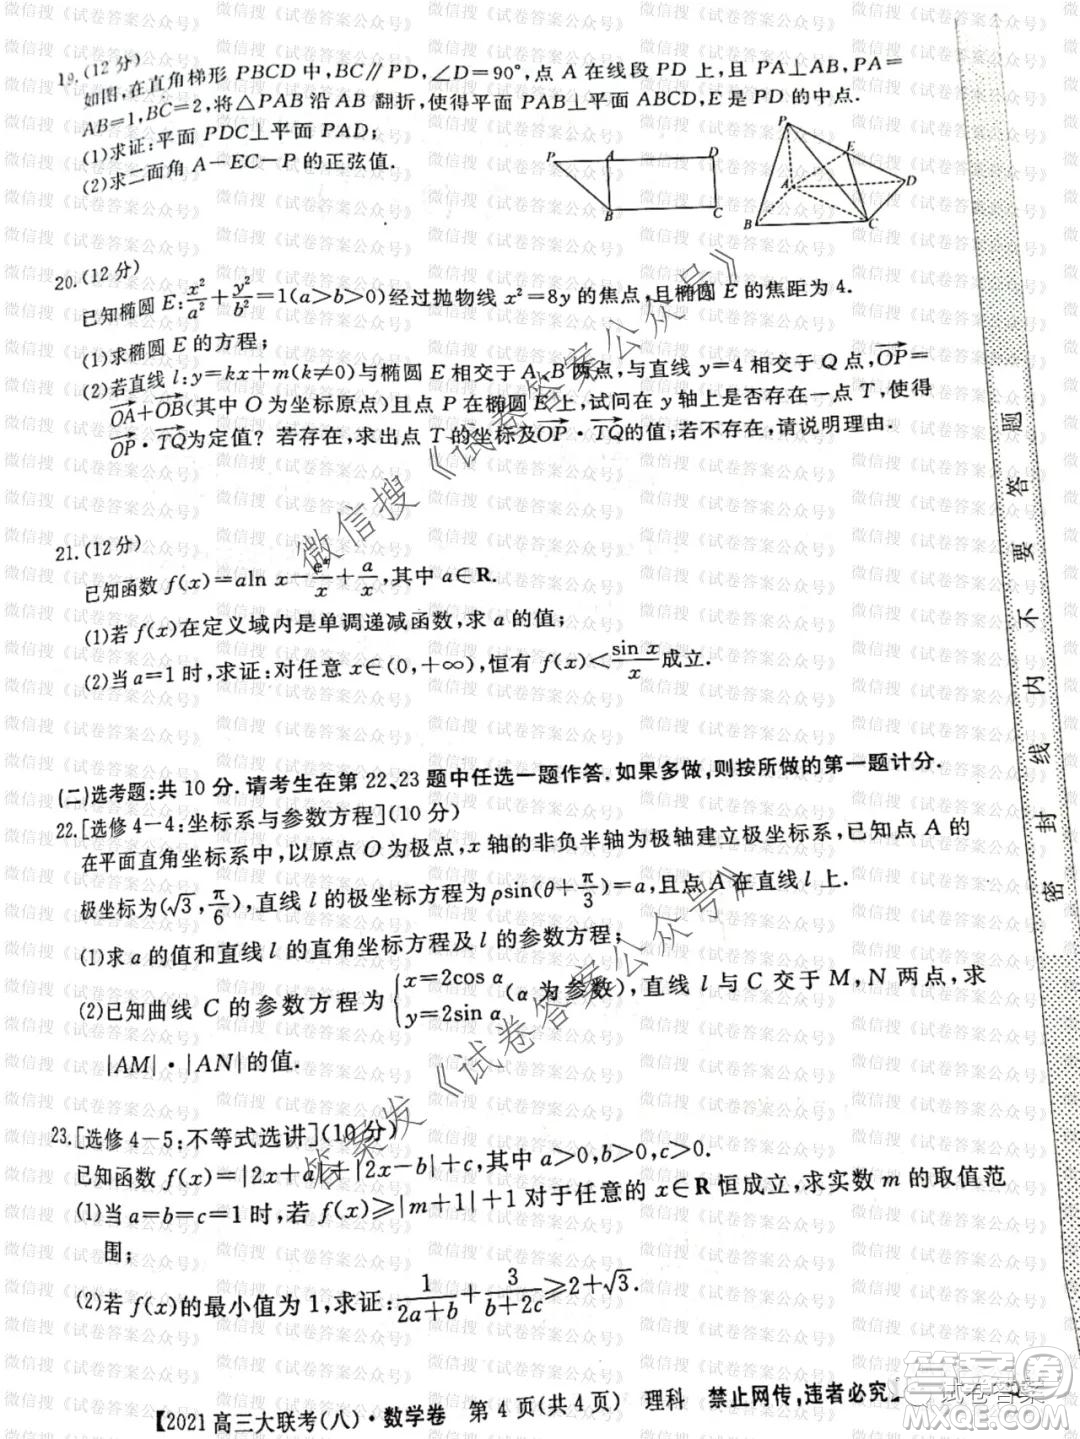 19.(12分)
如图,在直角梯形 PBCD 中,BC∥PD,∠D=90°,点 A 在线段 PD 上,且 PA⊥AB,PA=
AB=1,BC=2,将△PAB 沿 AB 翻折,使得平面 PAB⊥平面 ABCD,E 是 PD 的中点.
(1)求证:平面 PDC⊥平面 PAD;
(2)求二面角 A—EC—P 的正弦值.
P A D B C
P E A D B C
20.(12分)
已知椭圆 E:x²/a²+y²/b²=1(a>b>0)经过抛物线 x²=8y 的焦点,且椭圆 E 的焦距为 4.
(1)求椭圆 E 的方程;
(2)若直线 l:y=kx+m(k≠0)与椭圆 E 相交于 A、B 两点,与直线 y=4 相交于 Q 点,OP=
OA+OB(其中 O 为坐标原点)且点 P 在椭圆 E 上,试问在 y 轴上是否存在一点 T,使得
OP·TQ为定值?若存在,求出点 T 的坐标及OP·TQ的值;若不存在,请说明理由.
21.(12分)
已知函数 f(x)=aln x-eˣ/x+a/x,其中 a∈R.
(1)若 f(x)在定义域内是单调递减函数,求 a 的值;
(2)当 a=1 时,求证:对任意 x∈(0,+∞),恒有 f(x)<sin x/x成立.
(二)选考题:共 10 分.请考生在第 22、23 题中任选一题作答.如果多做,则按所做的第一题计分.
22.[选修 4—4:坐标系与参数方程](10分)
在平面直角坐标系中,以原点 O 为极点,x 轴的非负半轴为极轴建立极坐标系,已知点 A 的
极坐标为(√3,π/6),直线 l 的极坐标方程为 ρsin(θ+π/3)=a,且点 A 在直线 l 上.
(1)求 a 的值和直线 l 的直角坐标方程及 l 的参数方程;
(2)已知曲线 C 的参数方程为{x=2cos α y=2sin α(α 为参数),直线 l 与 C 交于 M,N 两点,求
|AM|·|AN|的值.
23.[选修 4—5:不等式选讲](10分)
已知函数 f(x)=|2x+a|+|2x-b|+c,其中 a>0,b>0,c>0.
(1)当 a=b=c=1 时,若 f(x)≥|m+1|+1 对于任意的 x∈R 恒成立,求实数 m 的取值范
围;
(2)若 f(x)的最小值为 1,求证:1/(2a+b)+3/(b+2c)≥2+√3.
【2021 高三大联考(八)·数学卷 第 4 页(共 4 页) 理科 禁止网传,违者必究】
密 封 线 内 不 要 答 题
微信搜《试卷答案公众号》
答案发《试卷答案公众号》
试卷答案
答案圈